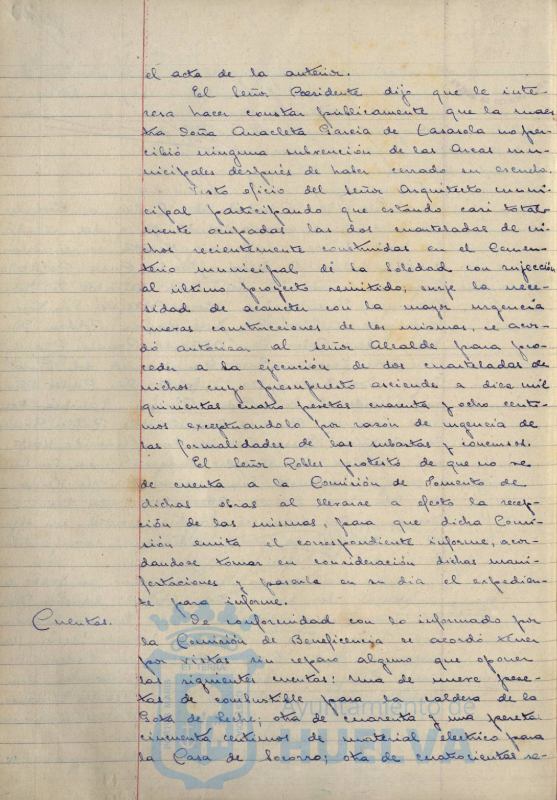 el acta de la anterior.
El Señor Presidente dijo que le inte-
resa hacer constar públicamente que la maes-
tra Doña Anacleta Garcia de Casasola no per-
cibió ninguna subvención de las Arcas mu-
nicipales después de haber cerrado su escuela.
Visto oficio del Señor Arquitecto muni-
cipal participando que estando casi total-
mente ocupadas las dos cuarteladas de ni-
chos recientemente construidas en el Cemen-
terio municipal de la Soledad con sujección
al último proyecto remitido, surje la nece-
sidad de acometer con la mayor urgencia
nuevas construcciones de los mismos, se acor-
dó autorizar al Señor Alcalde para pro-
ceder a la ejecución de dos cuarteladas de
nichos cuyo presupuesto asciende a diez mil
quinientas cuatro pesetas cuarenta y ocho centi-
mos exceptuandolo por razón de urgencia de
las formalidades de las subastas y concursos.
El Señor Robles protestó de que no se
de cuenta a la Comisión de Fomento de
dichas obras al llevarse a efecto la recep-
ción de las mismas, para que dicha Comi-
sión emita el correspondiente informe, acor-
dandose tomar en consideración dichas mani-
festaciones y pasarle en su dia el expedien-
te para informe.
Cuentas. De conformidad con lo informado por
la Comisión de Beneficencia se acordó tener
por vistas sin reparo alguno que oponer
las siguientes cuentas: Una de nueve pese-
tas de combustible para la caldera de la
Gota de leche; otra de cuarenta y una pesetas
cincuenta centimos de material electrico para
la Casa de Socorro; otra de cuatrocientas se-
Ayuntamiento de
HUELVA